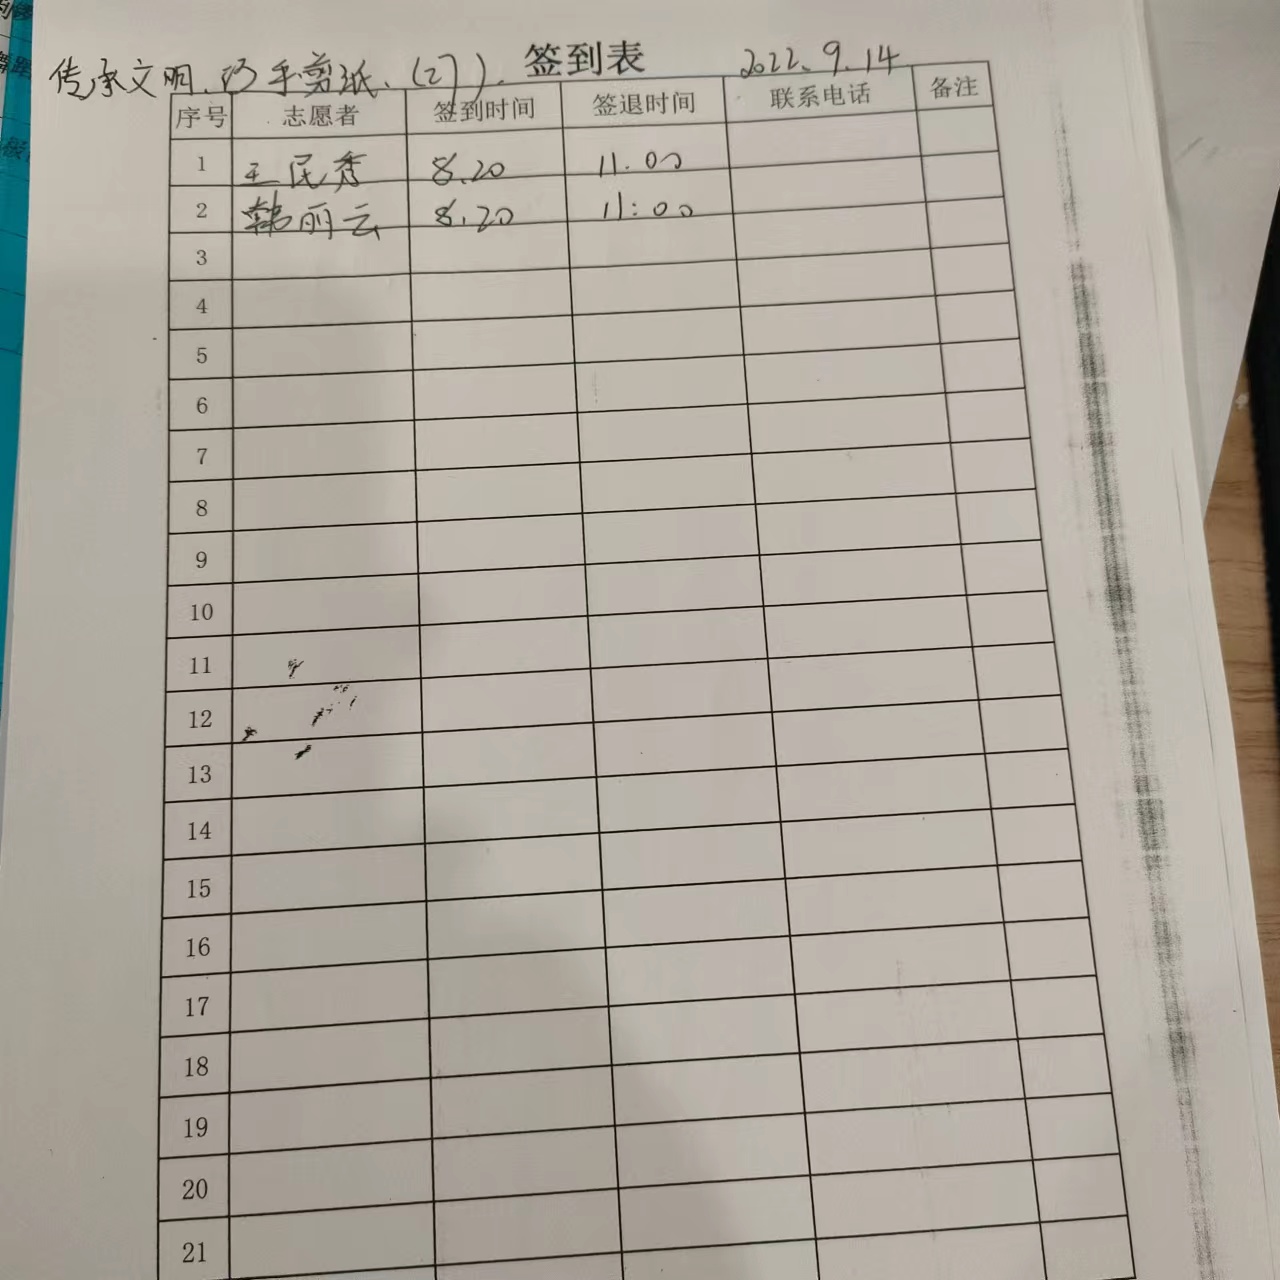 传承文明、巧手剪纸、(27). 签到表 2022.9.14
序号 志愿者 签到时间 签退时间 联系电话 备注
1 王民秀 8.20 11.00
2 韩丽云 8.20 11:00
3
4
5
6
7
8
9
10
11
12
13
14
15
16
17
18
19
20
21